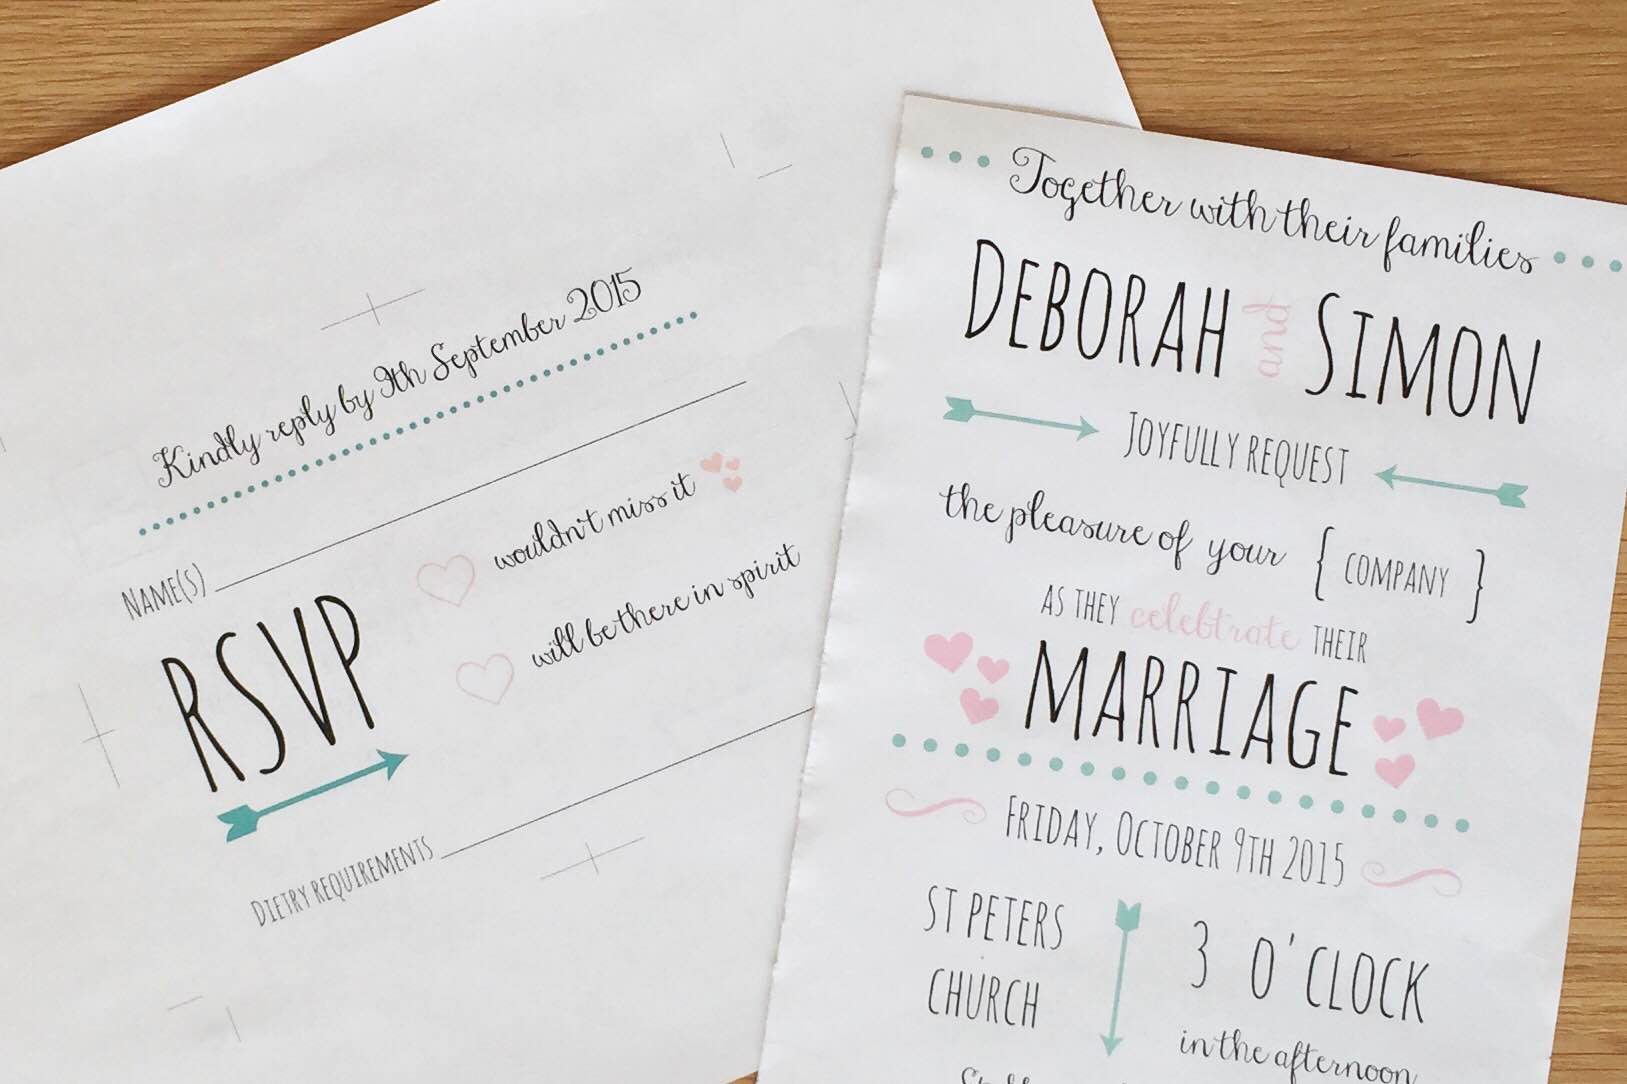 Kindly reply by 9th September 2015
NAME(S)
wouldn't miss it
will be there in spirit
RSVP
DIETRY REQUIREMENTS
Together with their families
DEBORAH and SIMON
JOYFULLY REQUEST
the pleasure of your { COMPANY }
AS THEY celebtrate THEIR
MARRIAGE
FRIDAY, OCTOBER 9TH 2015
ST PETERS
CHURCH
3 O'CLOCK
in the afternoon